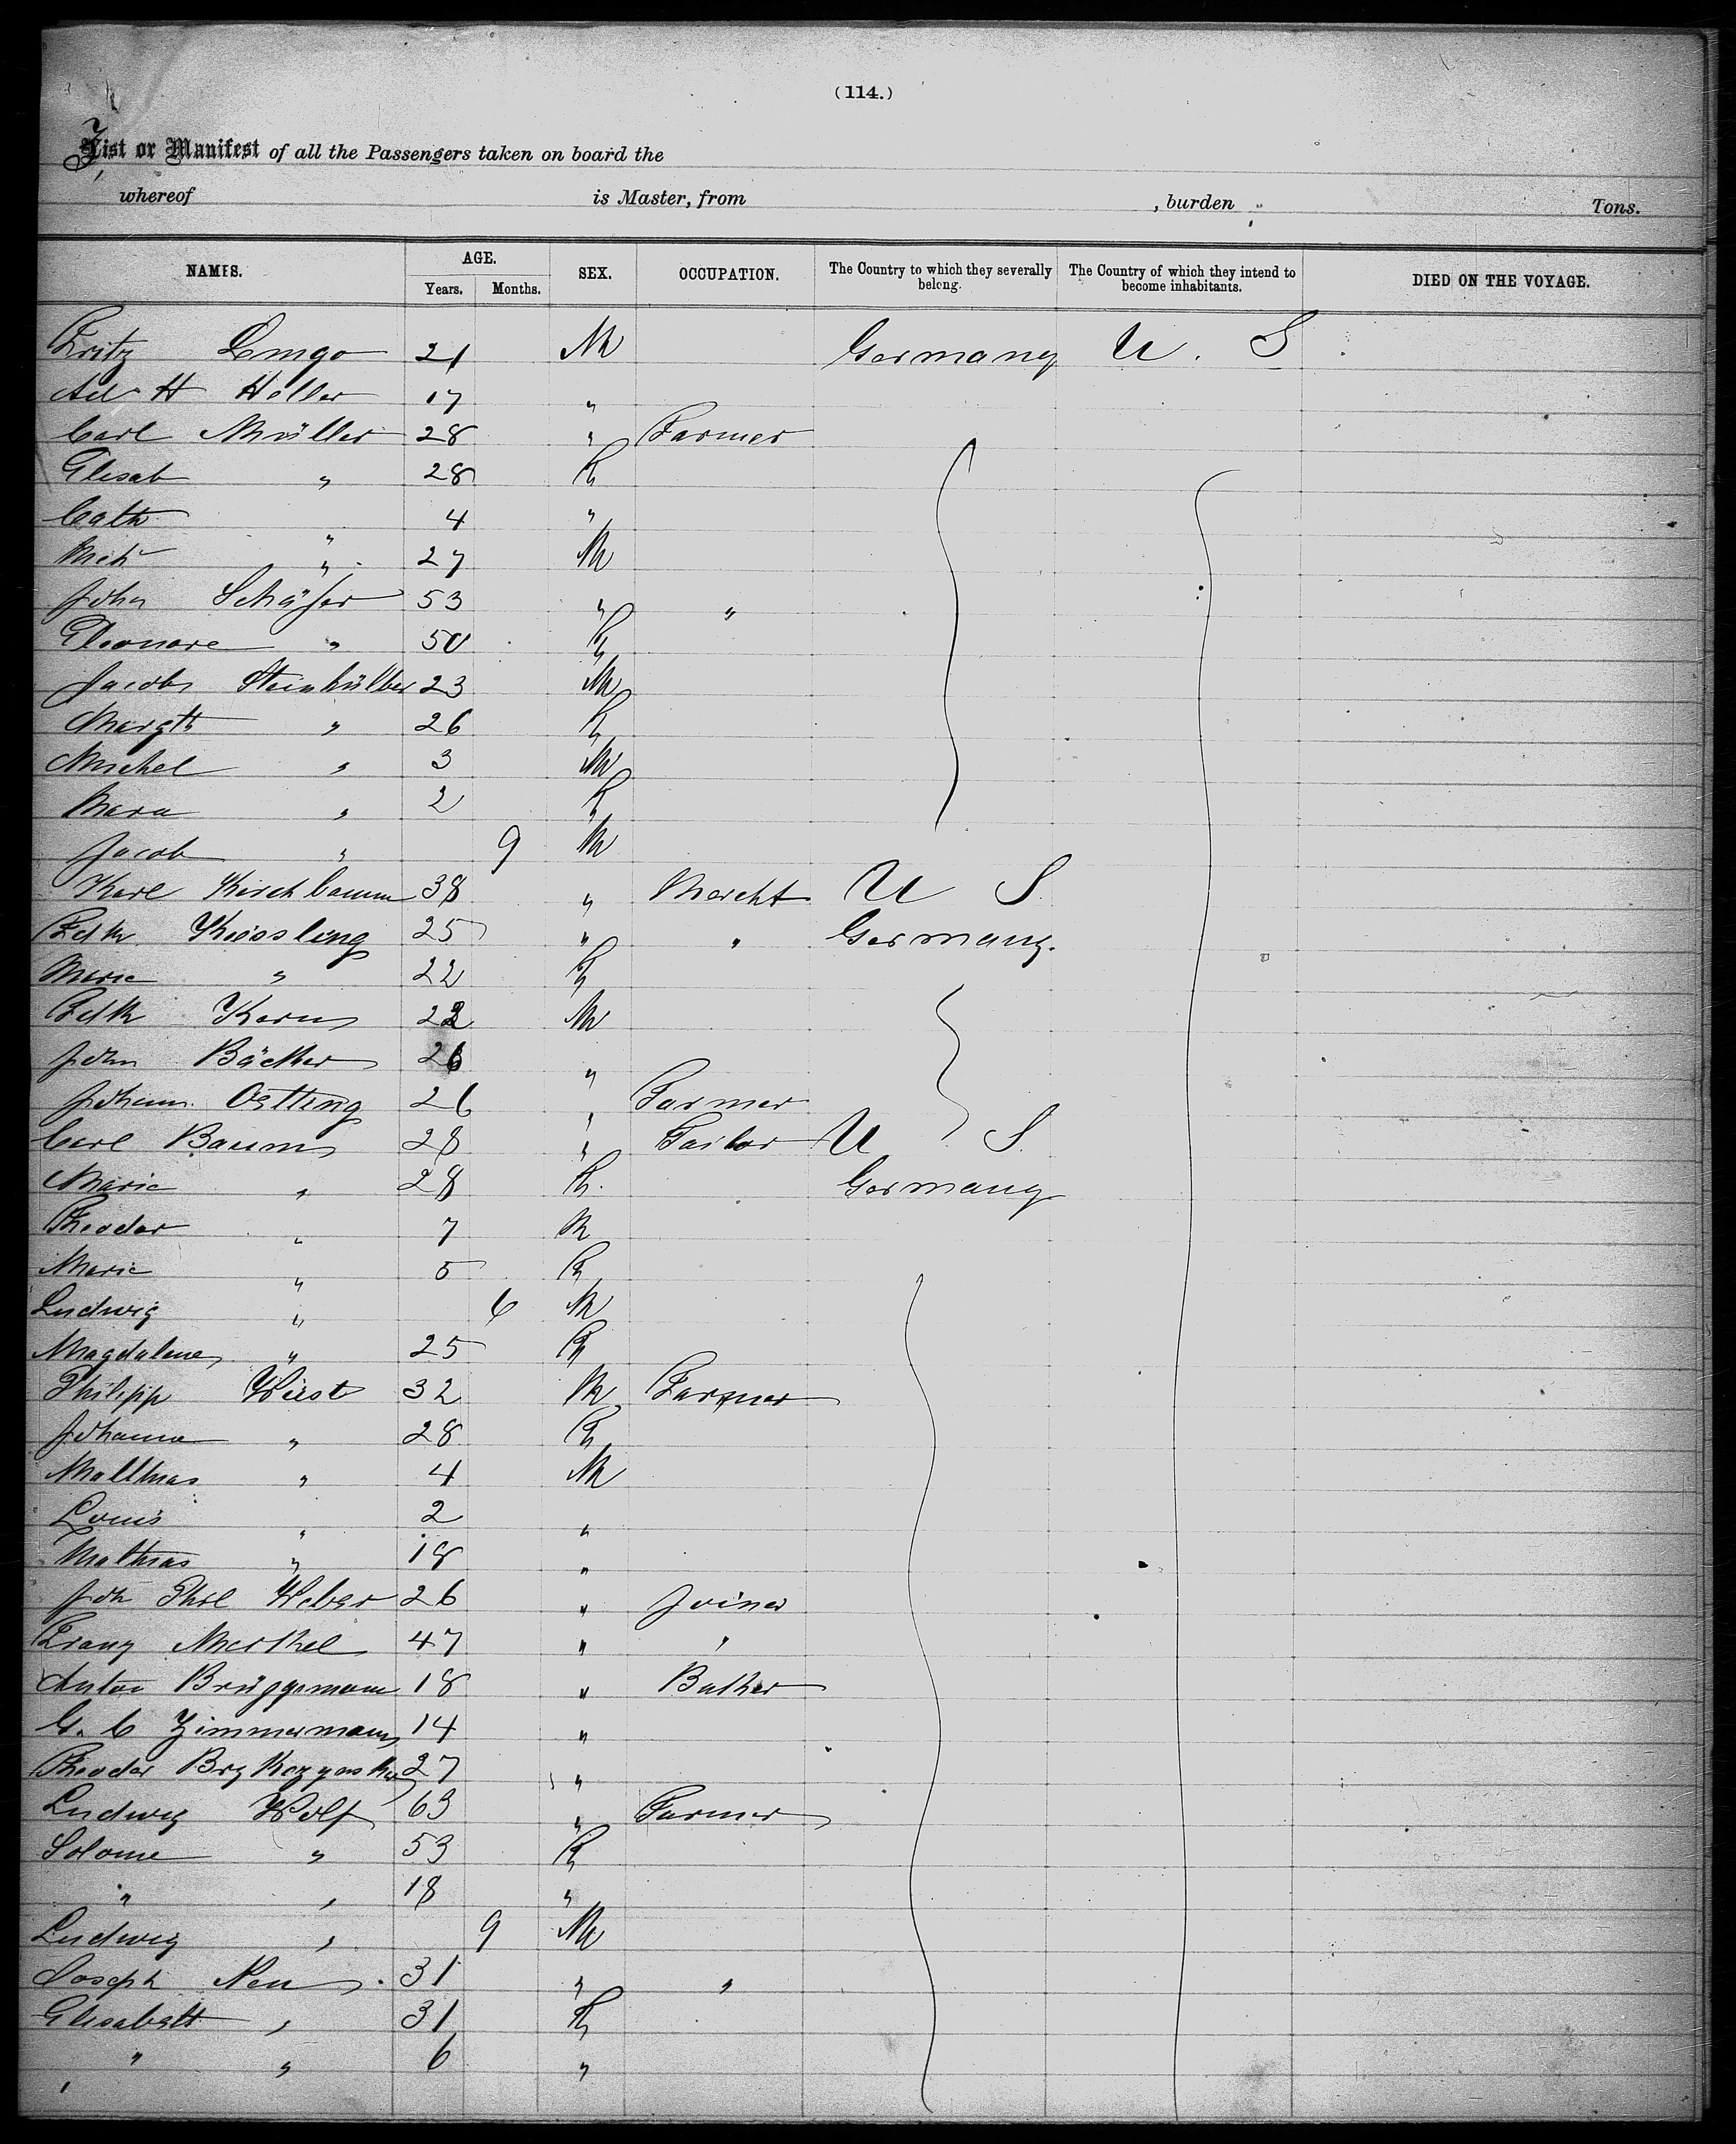 (114.)
List or Manifest of all the Passengers taken on board the
whereof is Master, from , burden Tons.
NAMES. AGE. Years. Months. SEX. OCCUPATION. The Country to which they severally belong. The Country of which they intend to become inhabitants. DIED ON THE VOYAGE.
Fritz 21 M Germany U. S
Ad H Holler 17 "
Carl Müller 28 " Farmer
Elisab " 28 F
Cath " 4 "
Mich " 27 M
John Schäfer 53 " "
Eleonore " 50 F
Jacob 23 M
Margth " 26 F
Michel " 3 M
Mara " 2 F
Jacob " 9 M
Karl Kirschbaum 38 " Mercht U S
Fdk Kiessling 25 " " Germany.
Marie " 22 F
Fdk Kern 22 M
John Bäcker 26 "
Johann Oetting 26 " Farmer
Carl Baum 28 " Tailor U S.
Marie " 28 F. Germany
Theodor " 7 M
Marie " 5 F
Ludwig " 6 M
Magdalene " 25 F
Philipp Wirst 32 M Farmer
Johanna " 28 F
Matthias " 4 M
Louis " 2 "
Mathias " 18 "
Joh Phil Weber 26 " Joiner
Franz Merkel 47 " "
Anton Brüggemann 18 " Butcher
G. C Zimmermann 14 "
Theodor 27 "
Ludwig Wolf 63 " Farmer
Salome " 53 F
" " 18 "
Ludwig " 9 M
Joseph Neu 31 " "
Elisabeth " 31 F
" " 6 "